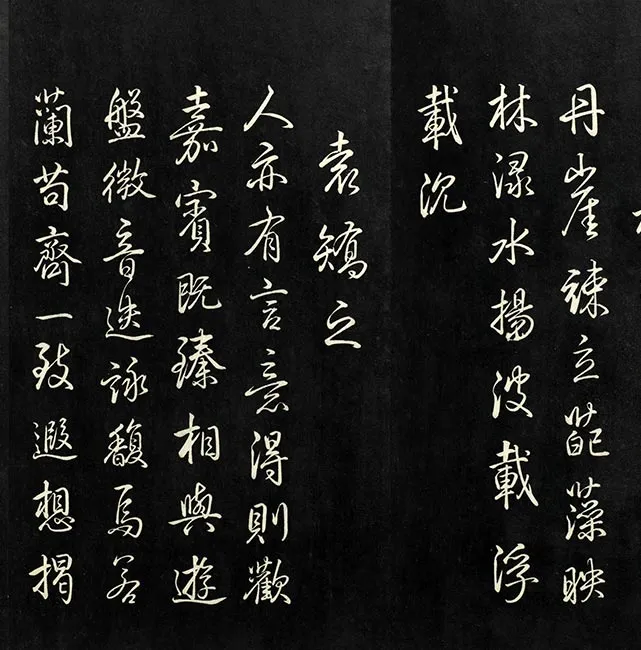 丹崖竦立葩藻映
林渌水揚波載浮
載沉
袁矯之
人亦有言意得則歡
嘉賓既臻相與遊
盤微音迭詠馥焉若
蘭苟齊一致遐想揭